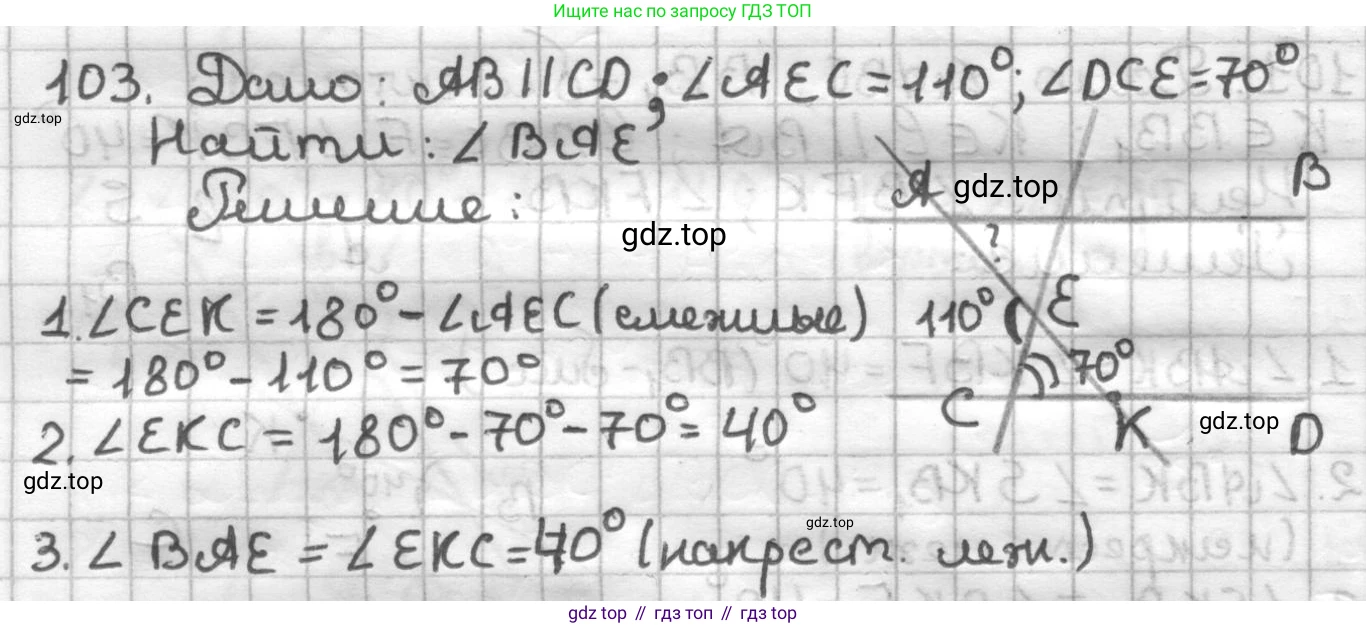 Ищите нас по запросу ГДЗ ТОП
103. Дано: AB || CD; ∠AEC = 110°; ∠DCE = 70°
gdz.top
Найти: ∠BAE
Решение:
A gdz.top B
gdz.top
?
1. ∠CEK = 180° - ∠AEC (смежные)
110° E
= 180° - 110° = 70°
70°
C K gdz.top D
2. ∠EKC = 180° - 70° - 70° = 40°
gdz.top
gdz.top
3. ∠BAE = ∠EKC = 40° (накрест. леж.)
gdz top // гдз топ // gdz top